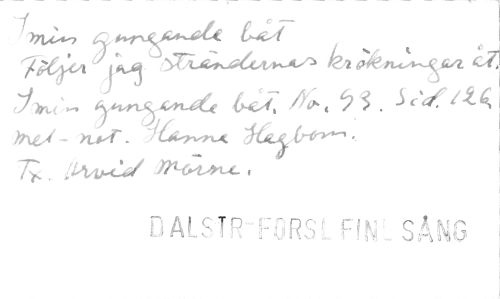 I min gungande båt
Följer jag strändernas krökningar åt.
I min gungande båt. No. 93. Sid. 126
mel-not. Hanna Hagbom.
Tx. Arvid Mörne.
DALSTR-FORSL FINL SÅNG